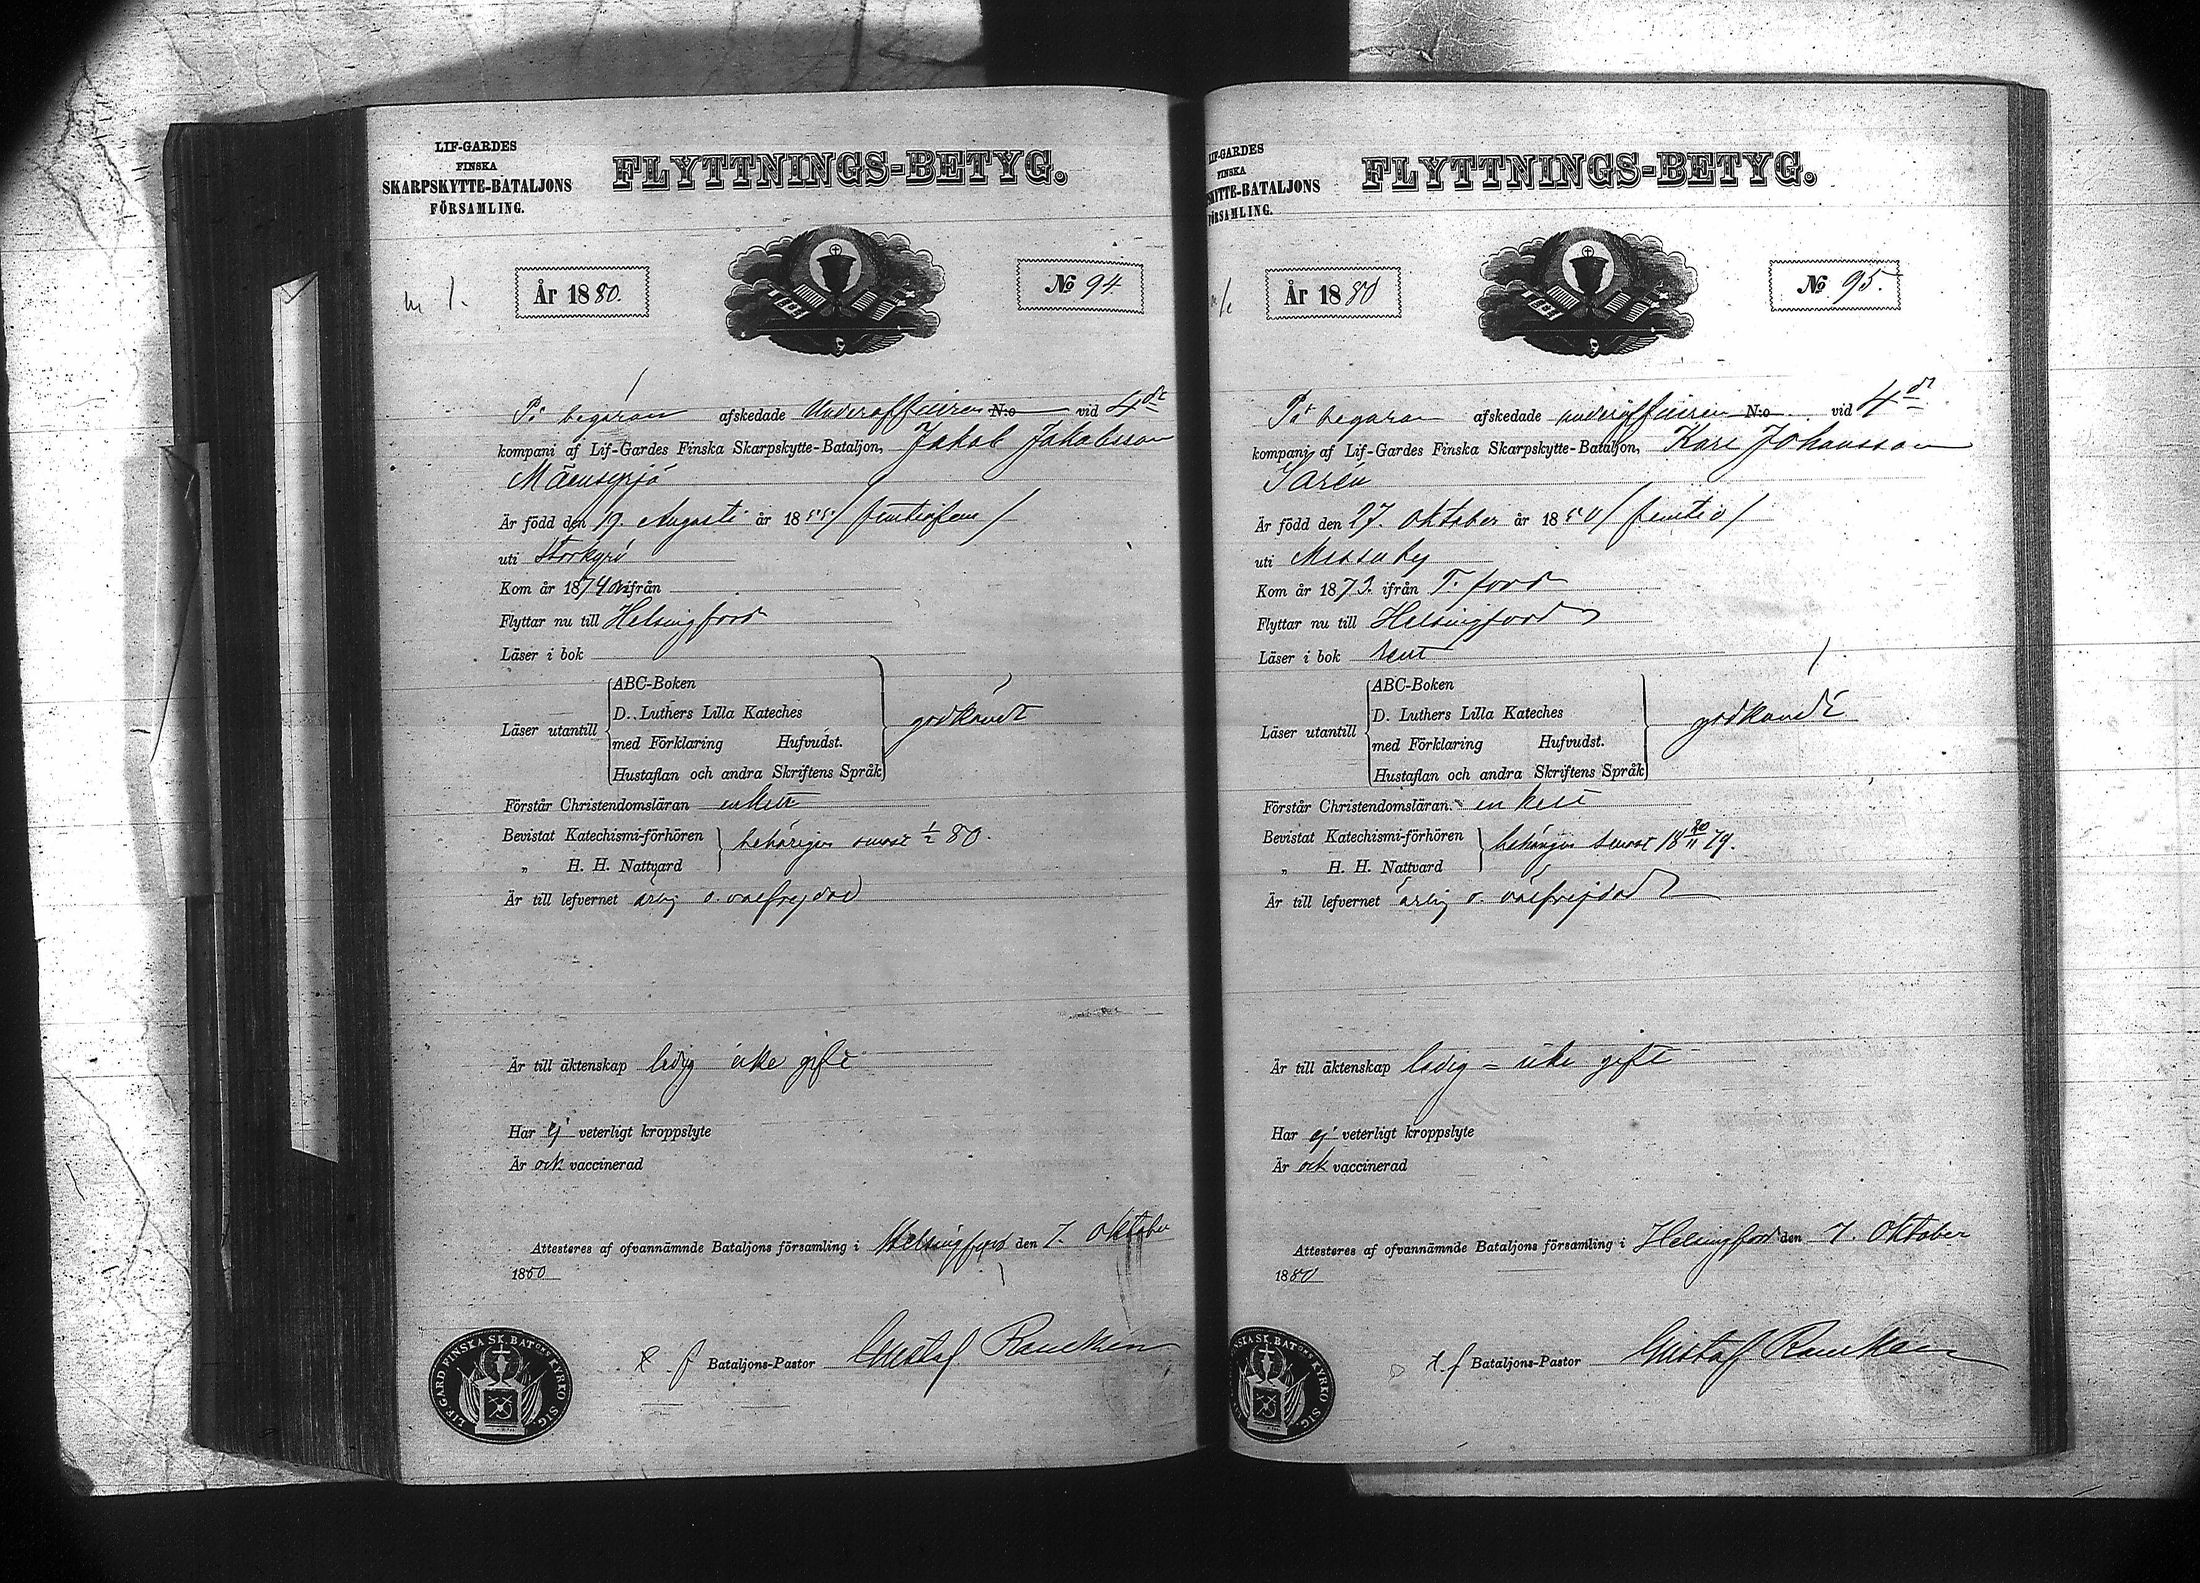 LIF-GARDES
FINSKA
SKARPSKYTTE-BATALJONS
FÖRSAMLING.
FLYTTNINGS-BETYG.
År 1880.
No 94
På begäran afskedade Underofficeren N:o vid 4de
kompani af Lif-Gardes Finska Skarpskytte-Bataljon, Jakob Jakobsson
Mäensyrjä
Är född den 19. Augusti år 1855 / femtiofem /
uti Storkyro
Kom år 1874 ifrån
Flyttar nu till Helsingfors
Läser i bok
Läser utantill
ABC-Boken
D. Luthers Lilla Kateches
med Förklaring Hufvudst.
Hustaflan och andra Skriftens Språk
godkändt
Förstår Christendomsläran enkelt
Bevistat Katechismi-förhören
„ H. H. Nattvard
behörigen senast 1/2 80.
Är till lefvernet ärlig o. välfrejdad
Är till äktenskap ledig icke gift
Har ej veterligt kroppslyte
Är ock vaccinerad
Attesteres af ofvannämnde Bataljons församling i Helsingfors den 7. Oktober
1880
t. f. Bataljons-Pastor Gustaf Rancken
LIF.GARD FINSKA SK. BAT:ONS KYRKO SIG.
LIF-GARDES
FINSKA
SKYTTE-BATALJONS
FÖRSAMLING.
FLYTTNINGS-BETYG.
År 1880
No 95.
På begäran afskedade underofficeren N:o vid 4de
kompani af Lif-Gardes Finska Skarpskytte-Bataljon, Karl Johansson
Sarén
Är född den 27. Oktober år 1850 / femtio /
uti Messuby
Kom år 1873. ifrån T. fors
Flyttar nu till Helsingfors
Läser i bok rent
Läser utantill
ABC-Boken
D. Luthers Lilla Kateches
med Förklaring Hufvudst.
Hustaflan och andra Skriftens Språk
godkändt
Förstår Christendomsläran enkelt
Bevistat Katechismi-förhören
„ H. H. Nattvard
behörigen senast 18 30/11 79.
Är till lefvernet ärlig o. välfrejdad
Är till äktenskap ledig = icke gift
Har ej veterligt kroppslyte
Är ock vaccinerad
Attesteres af ofvannämnde Bataljons församling i Helsingfors den 7. Oktober
1880
t. f. Bataljons-Pastor Gustaf Rancken
SKA SK. BAT:ONS KYRKO SIG.